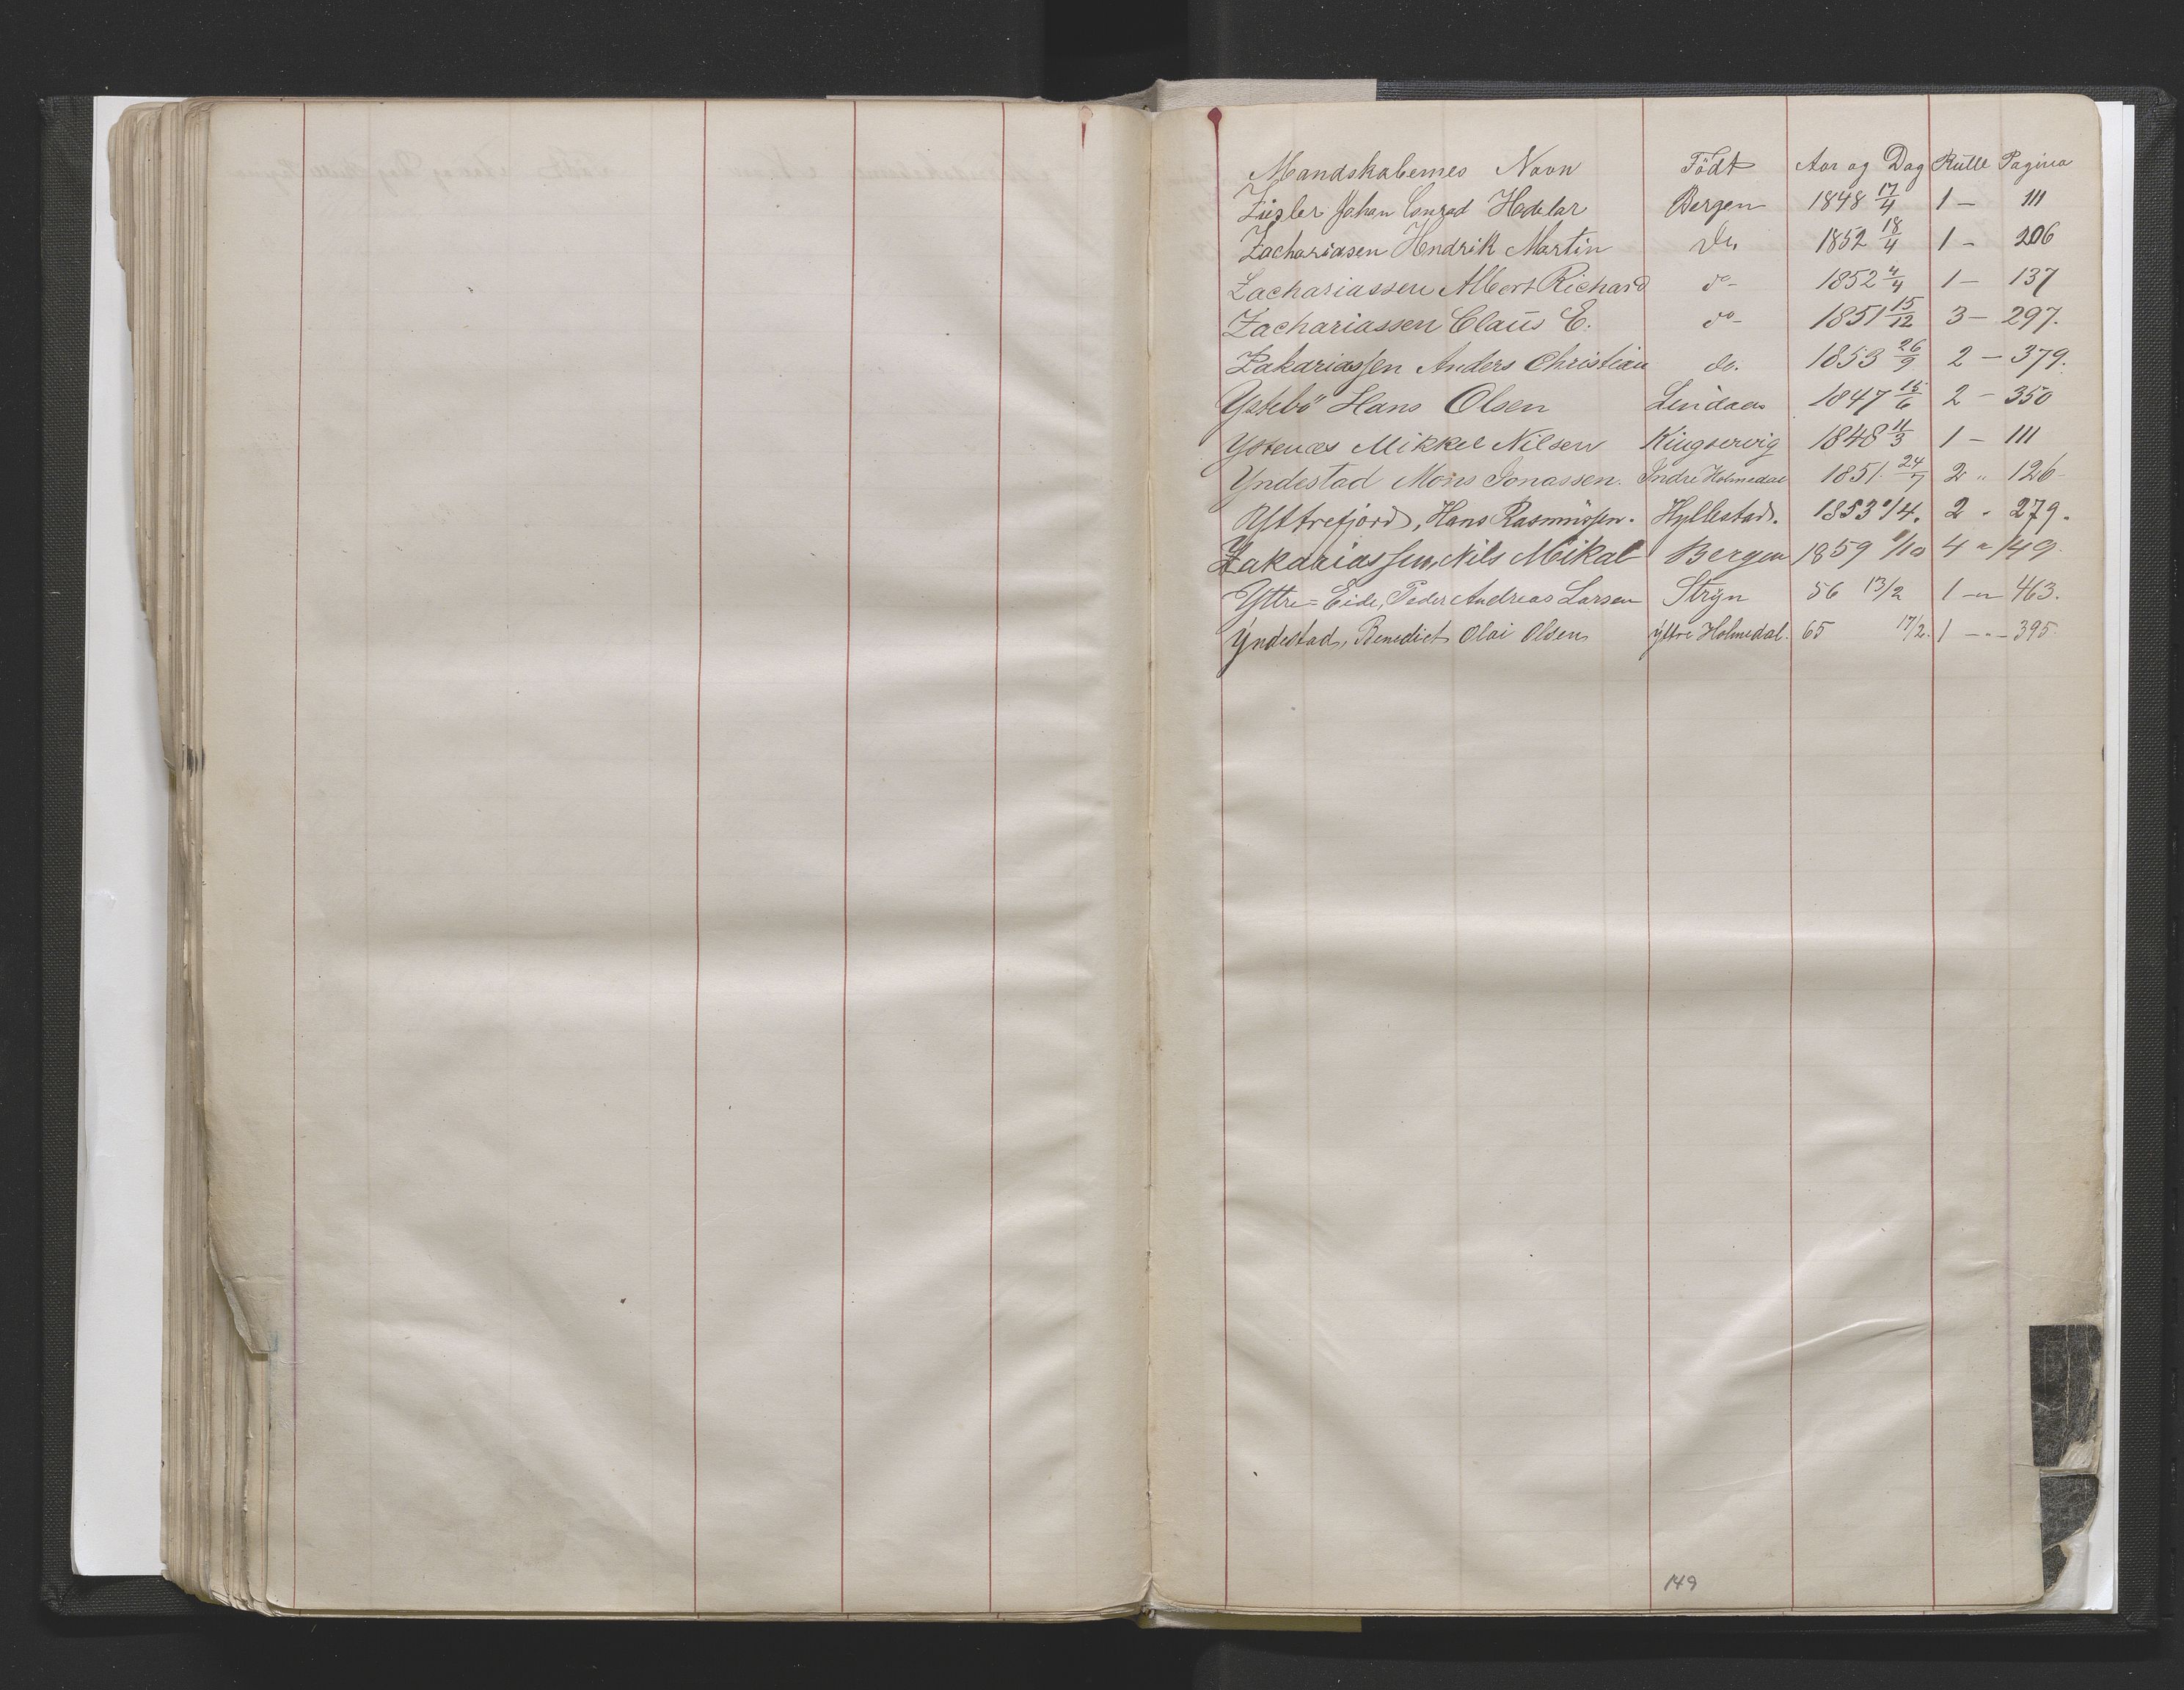 Mandskabernes Navn Födt Aar og Dag Rulle Pagina
Züsler Johan Conrad Bergen 1848 17/4 1 – 111
Zachariasen Hendrik Martin do. 1852 18/4 1 – 206
Zachariassen Albert Richard do – 1852 4/4 1 – 137
Zachariassen Claus E. do – 1851 15/12 3 – 297.
Zakariassen Anders Christian do. 1853 26/9 2 – 379.
Ystebö Hans Olsen Lindaas 1847 15/6 2 – 350
Ystenæs Mikkel Nilsen Kingservig 1848 11/3 1 – 111
Yndestad Mons Jonassen. Indre Holmedal 1851. 24/7 2 " 126
Yttrefjord, Hans Rasmussen. Hyllestad. 1853 2 " 279.
Zakariassen, Nils Mikal Bergen 1859 4 " 149.
Yttre=Eide, Peder Andreas Larsen Stryn 56 13/2 1 –"– 463.
Yndestad, Benedict Olai Olsen Yttre Holmedal. 65 17/2. 1 –"– 395
149